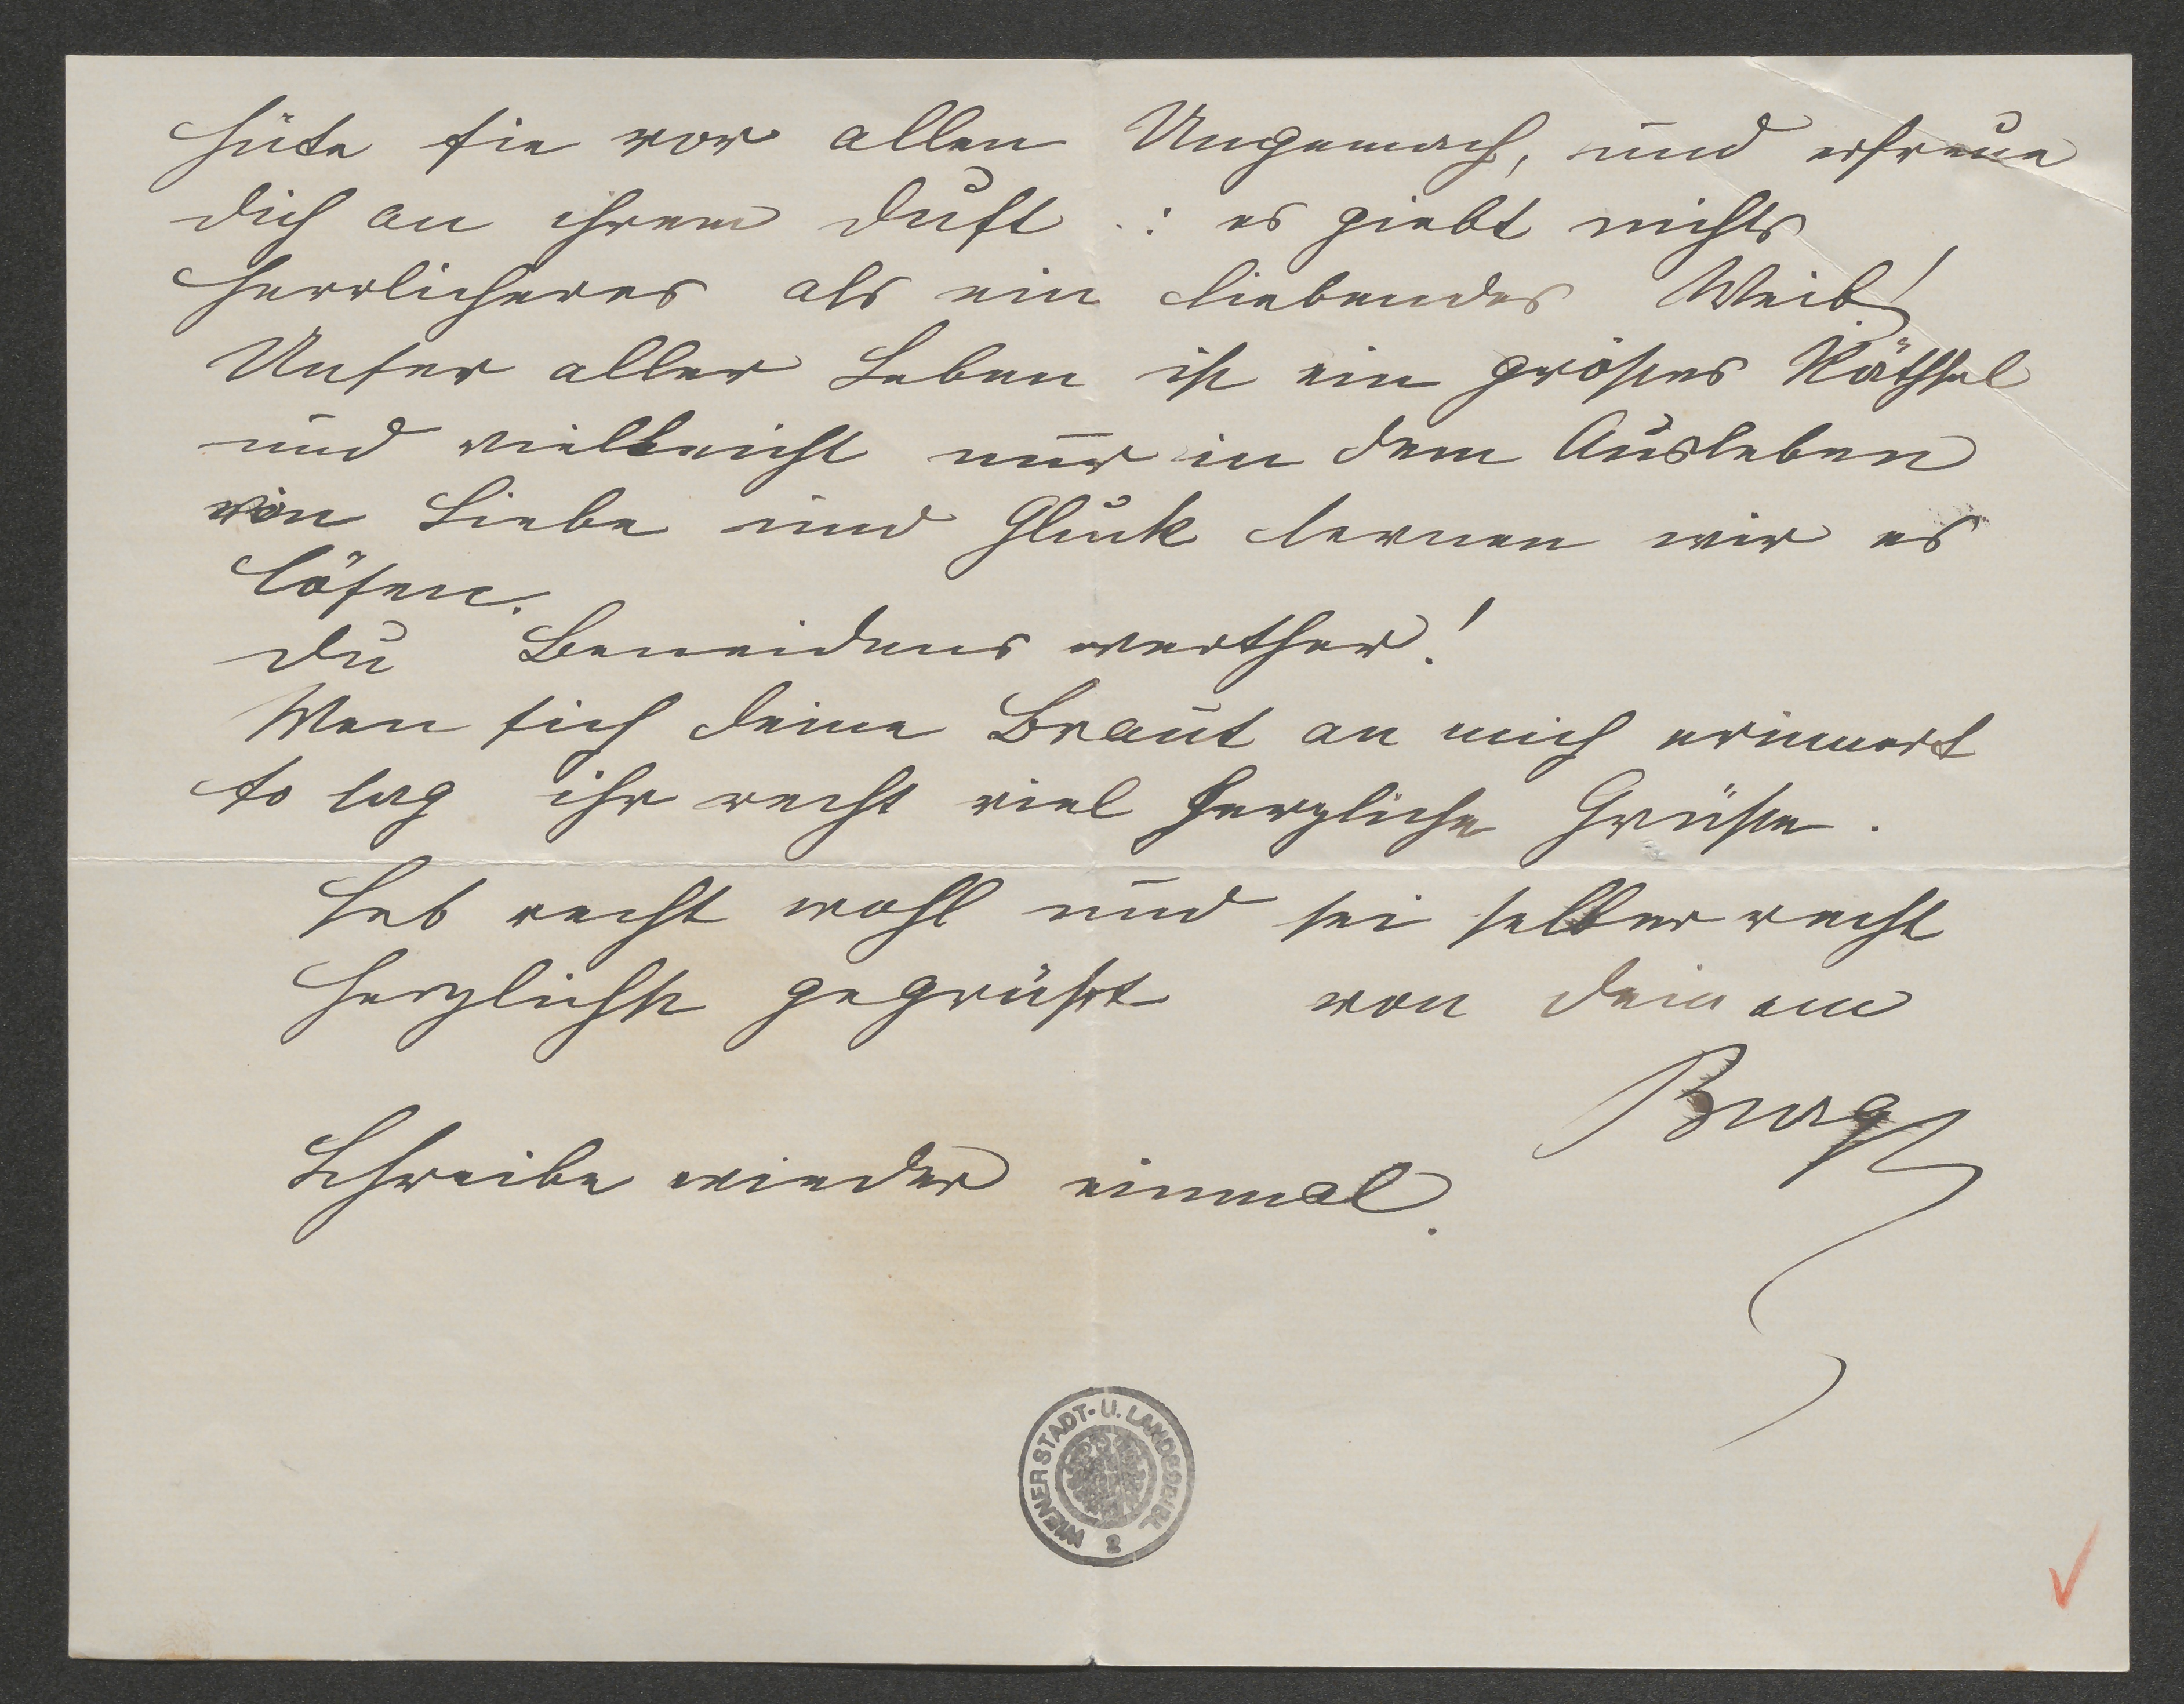 hüte sie vor allen Ungemach, und erfreue
dich an ihrem Duft : es giebt nichts
herrlicheres als ein liebendes Weib!
Unser aller Leben ist ein großes Räthsel
und vielleicht nur in dem Ausleben
von Liebe und Glück lernen wir es
lösen.
Du Beneidens werther!
Wen sich deine Braut an mich erinnert
so sag ihr recht viel herzliche Grüße.
Leb recht wohl und sei selber recht
herzlichst gegrüßt von deinem
Schreibe wieder einmal.
WIENER STADT- U. LANDESBIBL.